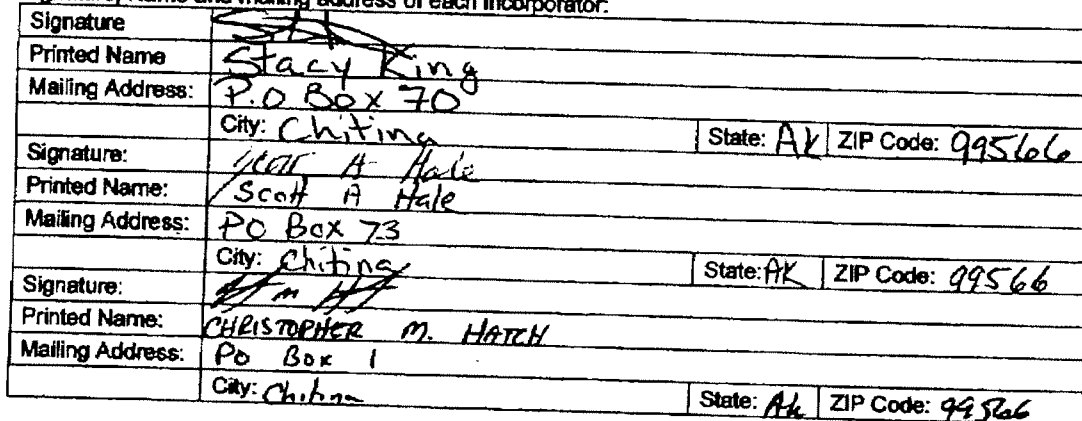 Name and mailing address of each incorporator:
Signature
Printed Name Stacy King
Mailing Address: P.O Box 70
City: Chitina State: AK ZIP Code: 99566
Signature: Scott A Hale
Printed Name: Scott A Hale
Mailing Address: PO Box 73
City: Chitina State: AK ZIP Code: 99566
Signature:
Printed Name: CHRISTOPHER M. HATCH
Mailing Address: Po Box 1
City: Chitina State: Ak ZIP Code: 99566